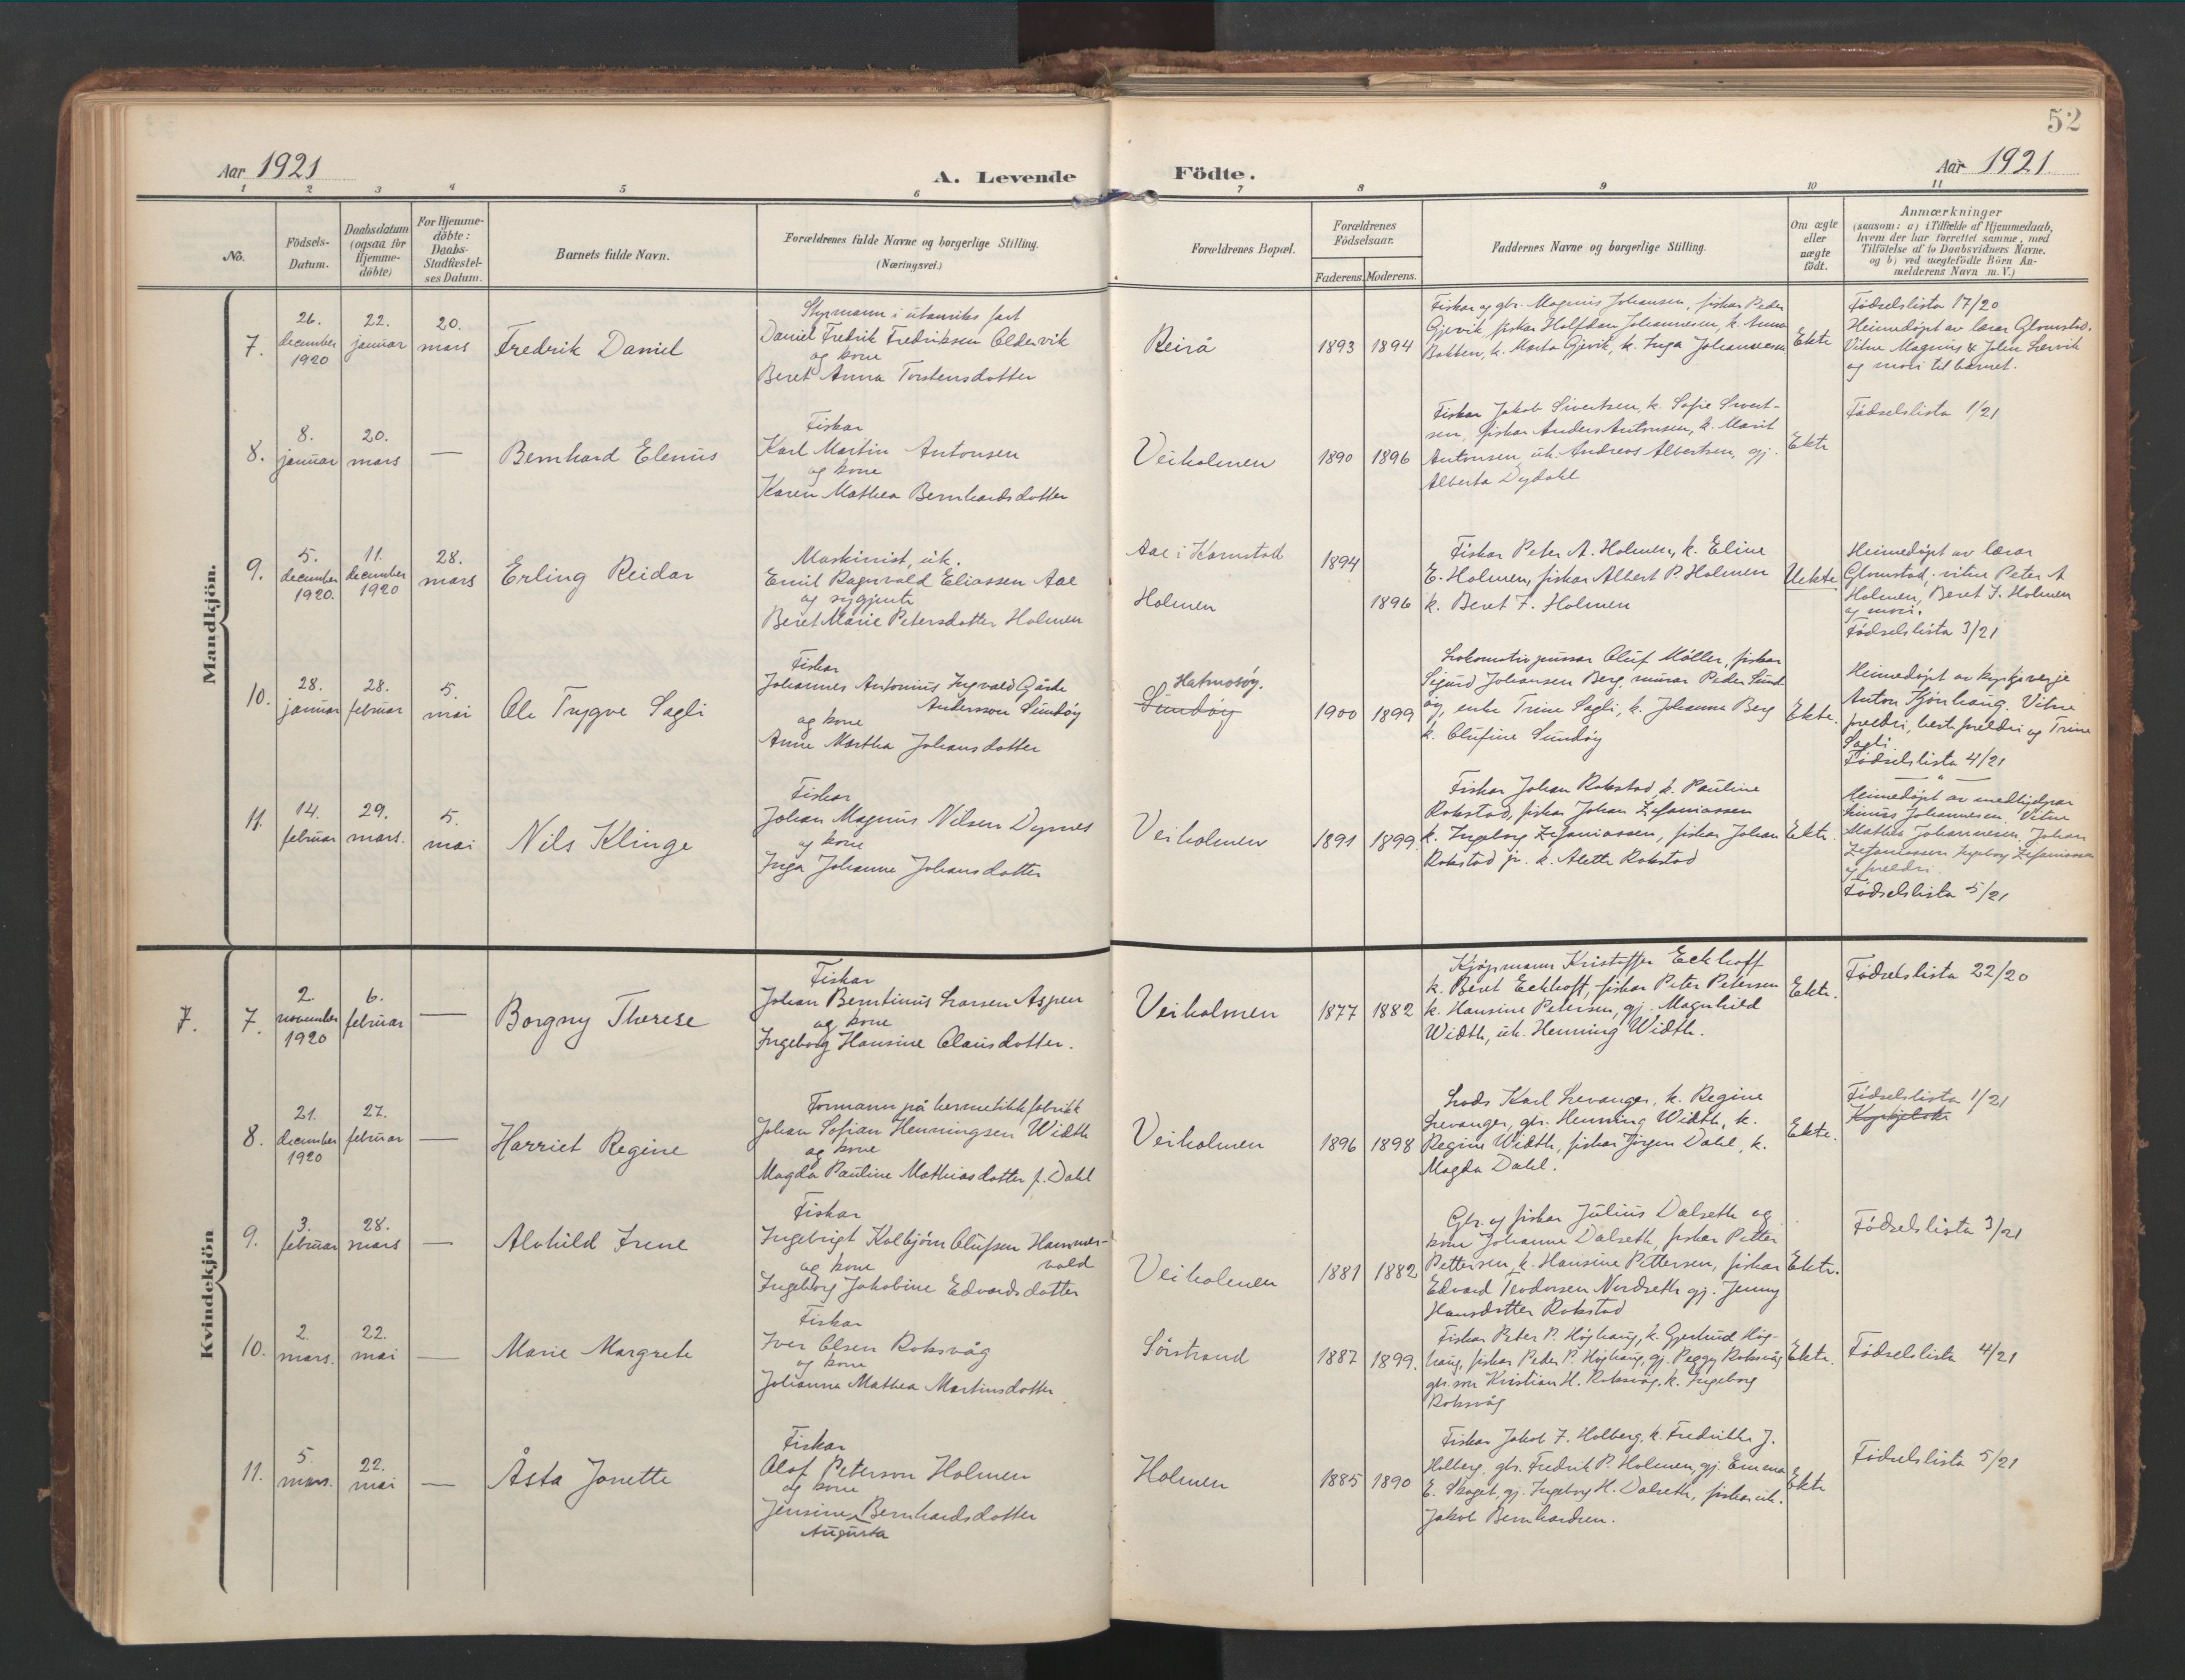 52
Aar 1921
A. Levende
Födte.
Aar 1921.
1 2 3 4 5 6 7 8 9 10 11
No.
Födsels-
Datum.
Daabsdatum
(ogsaa for
Hjemme-
döbte)
For Hjemme-
döbte:
Daabs-
Stadfæstel-
ses Datum.
Barnets fulde Navn.
Forældrenes fulde Navne og borgerlige Stilling.
(Næringsvei.)
Forældrenes Bopæl.
Forældrenes
Födselsaar.
Faderens.
Moderens.
Faddernes Navne og borgerlige Stilling.
Om ægte
eller
uægte
födt.
Anmærkninger
(saasom: a) i Tilfælde af Hjemmedaab,
hvem der har forrettet samme, med
Tilföielse af to Daabsvidners Navne.
og b) ved uægtefödte Börn An-
melderens Navn m. V.)
Mandkjön.
7.
26.
december
1920
22.
januar
20.
mars
Fredrik Daniel
Styrmann i utanriks fart
Daniel Fredrik Fredriksen Oldervik
og kone
Beret Anna Torstensdotter
Reirå
1893
1894
Fiskar og gbr. Magnus Johansen, fiskar Peder
Gjevik, fiskar Halfdan Johannesen, k. Anna
Bakken, k. Marta Gjevik, k. Inga Johannesen
Ekte
Fødselslista 17/20
Heimedøpt av lærar Glomstad.
Vitne Magnus & Jolin Lervik
og mori til barnet.
8.
8.
januar
20.
mars
—
Bernhard Elenus
Fiskar
Karl Martin Antonsen
og kone
Karen Mathea Bernhardsdotter
Veiholmen
1890
1896
Fiskar Jakob Sivertsen, k. Sofie Sivert-
sen, fiskar Anders Antonsen, k. Marit
Antonsen, uk. Andreas Albertsen, gj.
Alberta Dydahl
Ekte
Fødselslista 1/21
9.
5.
december
1920.
11.
december
1920
28.
mars
Erling Reidar
Maskinist, uk.
Emil Ragnvald Eliassen Aae
og sygjente
Beret Marie Petersdotter Holmen
Aae i Kornstad
Holmen
1894
1896
Fiskar Peter A. Holmen, k. Eline
E. Holmen, fiskar Albert P. Holmen
k. Beret F. Holmen
Uekte
Heimedøpt av lærar
Glomstad, vitne Peter A
Holmen, Beret F. Holmen
og mori.
Fødselslista 3/21
10.
28.
januar
28.
februar
5.
mai
Ole Trygve Sagli
Fiskar
Johannes Antonius Ingvald Gåske
Andersson Sundøy
og kone
Anne Martha Johansdotter
Hatmosøy.
Sundøy
1900
1899
Lokomotivpussar Oluf Möller, fiskar
Sigurd Johansen Berg, murar Peder Sund
øy, enke Trine Sagli, k. Johanne Berg
k. Olufine Sundøy
Ekte.
Heimedøpt av kyrkjeverje
Anton Kjønhaug. Vitne
foreldri, besteforeldri og Trine
Sagli.
Fødselslista 4/21
11.
14.
februar
29.
mars.
5.
mai
Nils Klinge
Fiskar
Johan Magnus Nilsen Dyrnes
og kone
Inga Johanne Johansdotter
Veiholmen
1891
1899.
Fiskar Johan Rokstad, k. Pauline
Rokstad, fiskar Johan Zefaniassen
k. Ingeborg Zefaniassen, fiskar Johan
Rokstad jr. k. Alette Rokstad
Ekte.
— " —
Heimedøpt av medhjelpar
Linus Johannesen. Vitne
Mathea Johannesen, Johan
Zefaniassen Ingeborg Zefaniassen
og foreldri.
Fødselslista 5/21
Kvindekjön
7.
7.
2.
november
1920
6.
februar
—
Borgny Therese
Fiskar
Johan Berntinus Larsen Aspen
og kone
Ingeborg Hansine Olausdotter.
Veiholmen
1877
1882
Kjøpmann Kristoffer Eckhoff
k. Beret Eckhoff, fiskar Peter Petersen
k. Hansine Petersen, gj. Magnhild
Width, uk. Henning Width.
Ekte.
Fødselslista 22/20
8.
21.
december
1920
27.
februar
—
Harriet Regine
Formann på hermetikkfabrikk
Johan Sofian Henningsen Width
og kone
Magda Pauline Mathiasdotter f. Dahl
Veiholmen
1896
1898
Lods Karl Levanger, k. Regine
Levanger, gbr. Henning Width, k.
Regine Width, fiskar Jørgen Dahl, k.
Magda Dahl.
Ekte.
Fødselslista 1/21
9.
3.
februar
28.
mars
—
Alvhild Irene
Fiskar
Ingebrigt Kolbjørn Olufsen Hammer-
vold
og kone
Ingeborg Jakobine Edvardsdotter
Veiholmen
1881
1882
Gbr. og fiskar Julius Dalseth og
kone Johanne Dalseth, fiskar Petter
Pettersen, k. Hansine Pettersen, fiskar
Edvard Teodorsen Nordseth gj. Jenny
Hansdotter Rokstad
Ekte.
Fødselslista 3/21
10.
2.
mars.
22.
mai
—
Marie Margrete
Fiskar
Iver Olsen Roksvåg
og kone
Johanna Mathea Martinsdotter
Sørstrand
1887
1899.
Fiskar Peter P. Høghaug, k. Gjertrud Høg-
haug, fiskar Peder P. Høghaug, gj. Peggy Roksvåg
gbr. son Kristian H. Roksvåg, k. Ingeborg
Roksvåg
Ekte.
Fødselslista 4/21
11.
5.
mars.
22.
mai
—
Åsta Jonette
Fiskar
Olaf Peterson Holmen
og kone
Jensine Bernhardsdotter
Augusta
Holmen
1885
1890
Fiskar Jakob F. Holberg, k. Fredrikke J.
Holberg, gbr. Fredrik P. Holmen, gj. Emma
E. Skaget, gj. Ingeborg H. Dalseth, fiskar uk.
Jakob Bernhardsen.
Ekte
Fødselslista 5/21